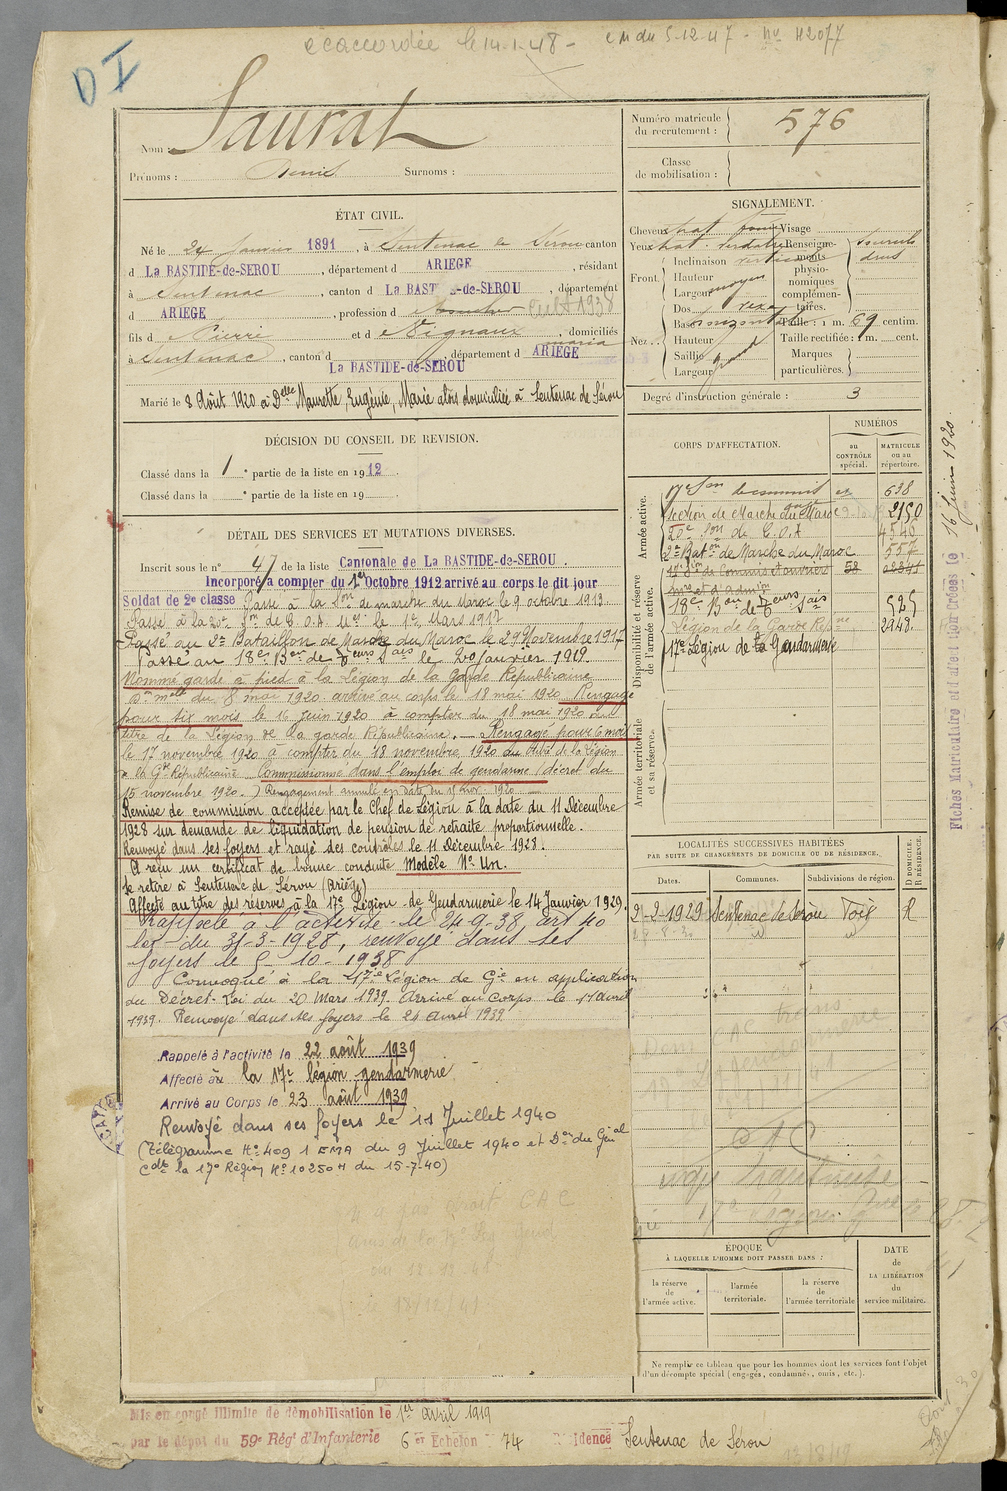 D I
accordée le 14-1-48 - C M du 5-12-47 - No 112077
Nom : Saurat
Prénoms : Denis Surnoms :
Numéro matricule du recrutement : 576
Classe de mobilisation :
ÉTAT CIVIL.
Né le 24 Janvier 1891, à Sentenac de Sérou canton
d La BASTIDE-de-SEROU, département d ARIEGE, résidant
à Sentenac, canton d La BASTIDE-de-SEROU, département
d ARIEGE, profession de Cult 1938
fils d Pierre et d Vignaux Maria, domiciliés
à Sentenac, canton d La BASTIDE-de-SEROU, département d ARIEGE
Marié le 8 Août 1920 à Delle Maurette, Eugénie, Marie alors domiciliée à Sentenac de Sérou
SIGNALEMENT.
Cheveux chat Visage
Yeux chat. verdatre Renseignements physionomiques complémentaires. sourcils drus
Front. Inclinaison verticale
Hauteur
Largeur moyen
Nez. Dos
Base horizontale Taille : 1 m. 69 centim.
Hauteur Taille rectifiée : 1 m. cent.
Saillie Marques
Largeur grand particulières.
Degré d'instruction générale : 3
DÉCISION DU CONSEIL DE REVISION.
Classé dans la 1e partie de la liste en 1912.
Classé dans la e partie de la liste en 19
DÉTAIL DES SERVICES ET MUTATIONS DIVERSES.
Inscrit sous le no 47 de la liste Cantonale de La BASTIDE-de-SEROU.
Incorporé à compter du 1er Octobre 1912 arrivé au corps le dit jour
Soldat de 2e classe Passé à la Son de marche du Maroc le 9 octobre 1913.
Passé à la 20e Son de C.O.A. Mre le 1er Mars 1917
Passé au 2e Bataillon de Marche du Maroc le 29 Novembre 1917
Passé au 18e Bon de Teurs Sais le 20 Janvier 1919.
Nommé garde à pied à la Légion de la Garde Républicaine
Don melle du 8 mai 1920. arrivé au corps le 18 mai 1920 Rengagé
pour six mois le 16 juin 1920 à compter du 18 mai 1920 au
titre de la Légion de la garde Républicaine. — Rengagé pour 6 mois
le 17 novembre 1920 à compter du 18 novembre 1920 au titre de la Légion
de la Gde Républicaine Commissionné dans l'emploi de gendarme (décret du
15 novembre 1920.) Rengagement annulé en date du 15 nov. 1920 —
Remise de commission acceptée par le Chef de Légion à la date du 11 Décembre
1928 sur demande de liquidation de pension de retraite proportionnelle.
Renvoyé dans ses foyers et rayé des contrôles le 11 Décembre 1928.
A reçu un certificat de bonne conduite Modèle No Un.
Se retire à Sentenac de Sérou (Ariège)
Affecté au titre des réserves à la 17e Légion de Gendarmerie le 14 Janvier 1929.
Rappelé à l'activité le 24-9-38, art 40
loi du 31-3-1928, renvoyé dans ses
foyers le 5-10-1938
Convoqué à la 17ie Légion de Gie en application
du Décret-Loi du 20 Mars 1939. Arrivé au Corps le 11 Avril
1939. Renvoyé dans ses foyers le 24 avril 1939
Rappelé à l'activité le 22 août 1939
Affecté à la 17e légion gendarmerie
Arrivé au Corps le 23 août 1939
Renvoyé dans ses foyers le 11 Juillet 1940
(Télégramme No 409 1 EMA du 9 Juillet 1940 et Don du Gnal
Cdt la 17e Région No 10250 H du 15-7-40)
n'a pas droit C A C
le 18/12/41
CORPS D'AFFECTATION.
NUMÉROS
au CONTRÔLE spécial.
MATRICULE ou au répertoire.
Armée active.
17e Son de commis et 638
Section de Marche du Maroc 2150
20e Son de C.O.A 4540
2e Baton de Marche du Maroc 557
Disponibilité et réserve de l'armée active.
18e Son de Commis et ouvriers 58
mres et d'admin
18e Bon de Teurs Sais 525
Légion de la Garde Repne 2948.
17e Légion de la Gendarmerie
Armée territoriale et sa réserve.
LOCALITÉS SUCCESSIVES HABITÉES
PAR SUITE DE CHANGEMENTS DE DOMICILE OU DE RÉSIDENCE.
Dates. Communes. Subdivisions de région. D DOMICILE. R RÉSIDENCE.
2-2-1929 Sentenac de Sérou Foix R
CAC
17e Légion
ÉPOQUE
À LAQUELLE L'HOMME DOIT PASSER DANS :
la réserve de l'armée active.
l'armée territoriale.
la réserve de l'armée territoriale
DATE de LA LIBÉRATION du service militaire.
Ne remplir ce tableau que pour les hommes dont les services font l'objet
d'un décompte spécial (engagés, condamnés, omis, etc.).
Fiches Matriculaire et d'affectation Créées le 16 Juin 1920.
Mis en congé illimité de démobilisation le 1er Avril 1919
par le dépôt du 59e Régt d'Infanterie 6 er Echelon 74 Résidence Sentenac de Sérou